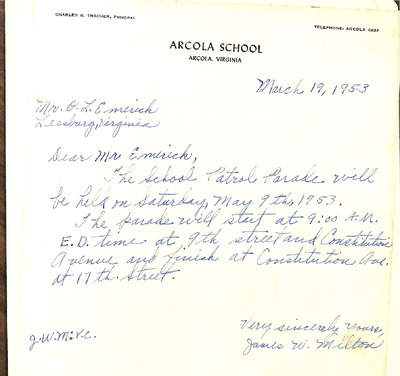 CHARLES R. THACHER, PRINCIPAL
TELEPHONE: ARCOLA 4833
ARCOLA SCHOOL
ARCOLA, VIRGINIA
March 19, 1953
Mr. O. L. Emerick
Leesburg, Virginia
Dear Mr Emerick,
The School Patrol Parade will
be held on Saturday, May 9th, 1953.
The parade will start at 9:00 A.M.
E.D. time at 9th street and Constitution
Avenue and finish at Constitution Ave.
at 17th Street.
Very sincerely yours,
J.W.M:V.C.
James W. Milton